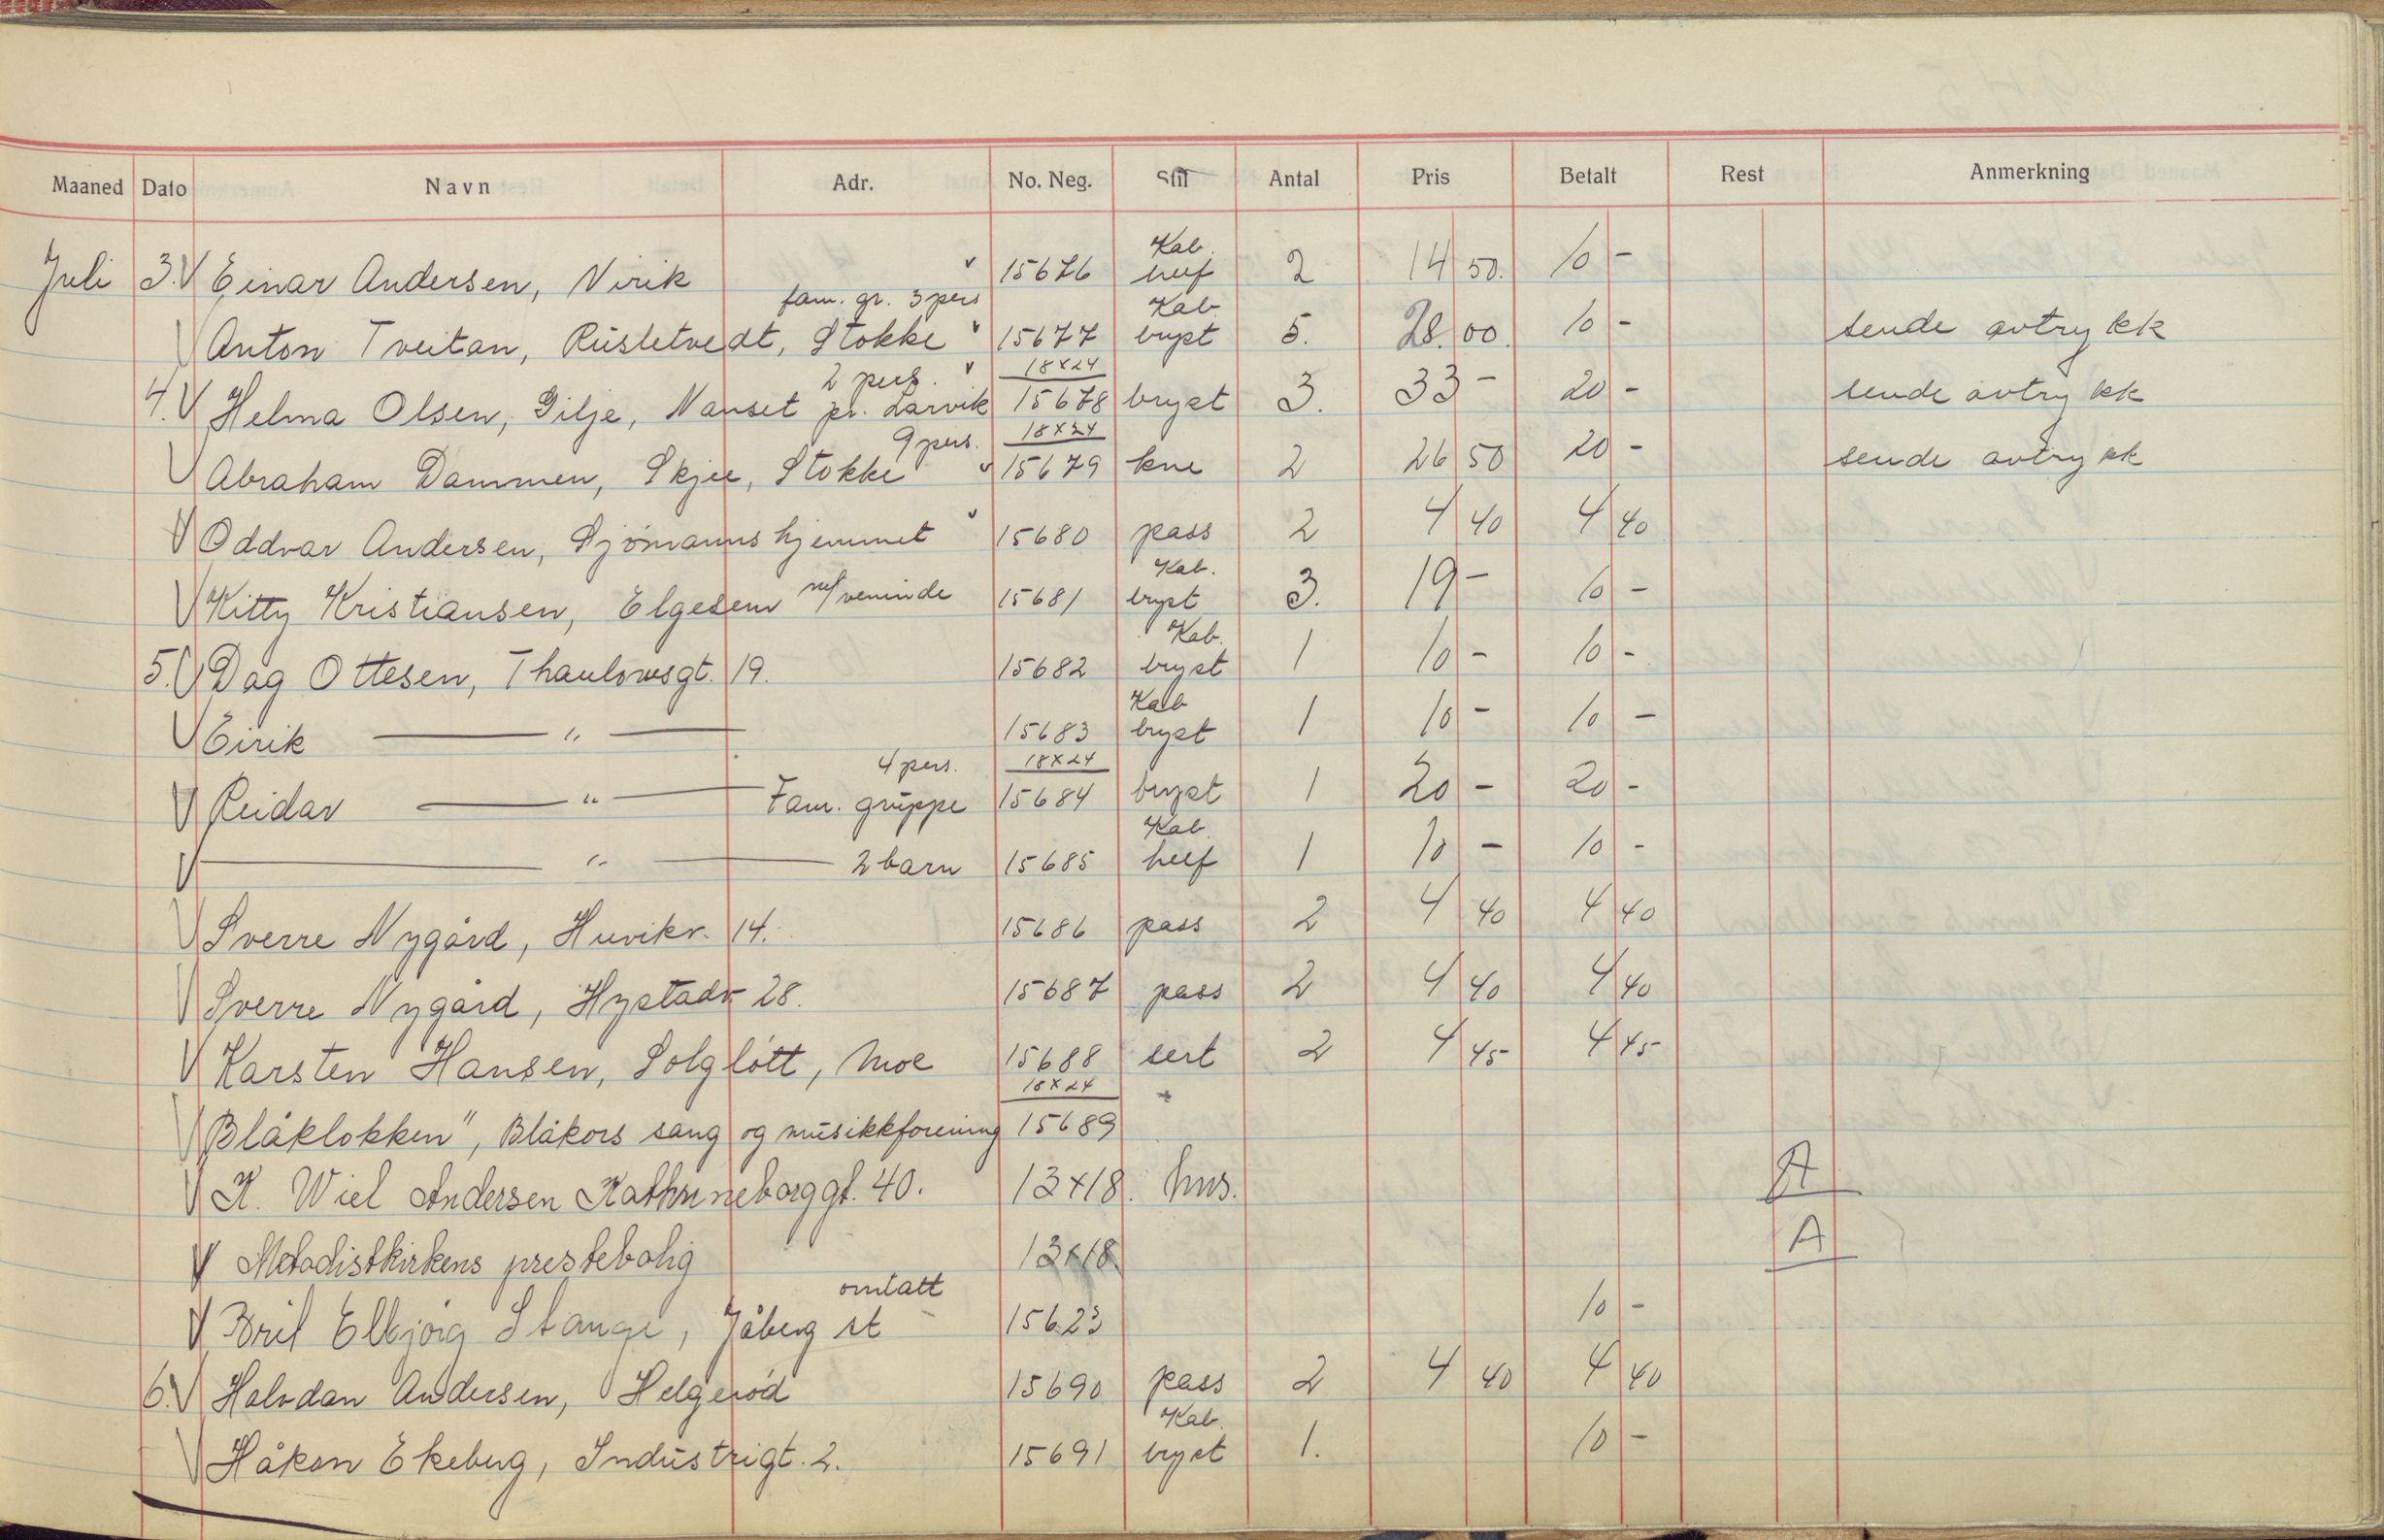 Maaned Dato Navn Adr. No. Neg. Stil Antal Pris Betalt Rest Anmerkning
Kab.
Juli 3. V Einar Andersen, Virik v 15676 helf 2 14 50. 10 -
fam. gr. 3 pers Kab.
V Anton Tveitan, Rusletvedt, Stokke v 15677 bryst 5. 28. 00. 10 - sende avtrykk
2 pers. v 18x24
4. V Helma Olsen, Gilje, Nanset pr. Larvik 15678 bryst 3. 33 - 20 - sende avtrykk
9 pers. 18x24
V Abraham Dammen, Skjee, Stokke v 15679 kne 2 26 50 20 - sende avtrykk
V Oddvar Andersen, Sjömannshjemmet v 15680 pass 2 4 40 4 40
Kab.
V Kitty Kristiansen, Elgesem m/veninde 15681 bryst 3. 19 - 10 -
Kab.
5. V Dag Ottesen, Thaulowsgt. 19. 15682 bryst 1 10 - 10 -
Kab
V Eirik — " — 15683 bryst 1 10 - 10 -
4 pers. 18x24
V Reidar — " — Fam. gruppe 15684 bryst 1 20 - 20 -
Kab.
V — " — 2 barn 15685 helf 1 10 - 10 -
V Sverre Nygård, Huvikv. 14. 15686 pass 2 4 40 4 40
V Sverre Nygård, Hystadv 28. 15687 pass 2 4 40 4 40
V Karsten Hansen, Solglött, Moe 15688 sert 2 4 45 4 45
18x24
V Blåklokken", Blåkors sang og musikkforening 15689
V K. Wiel Andersen Kathrineborggt. 40. 13x18. hus. A
V Metodistkirkens prestebolig 13x18 A
omtatt
V Bril Elbjörg Stange, Jåberg st - 15623 10 -
6. V Halvdan Andersen, Helgeröd 15690 pass 2 4 40 4 40
Kab.
V Håkon Ekeberg, Industrigt. 2. 15691 bryst 1. 10 -